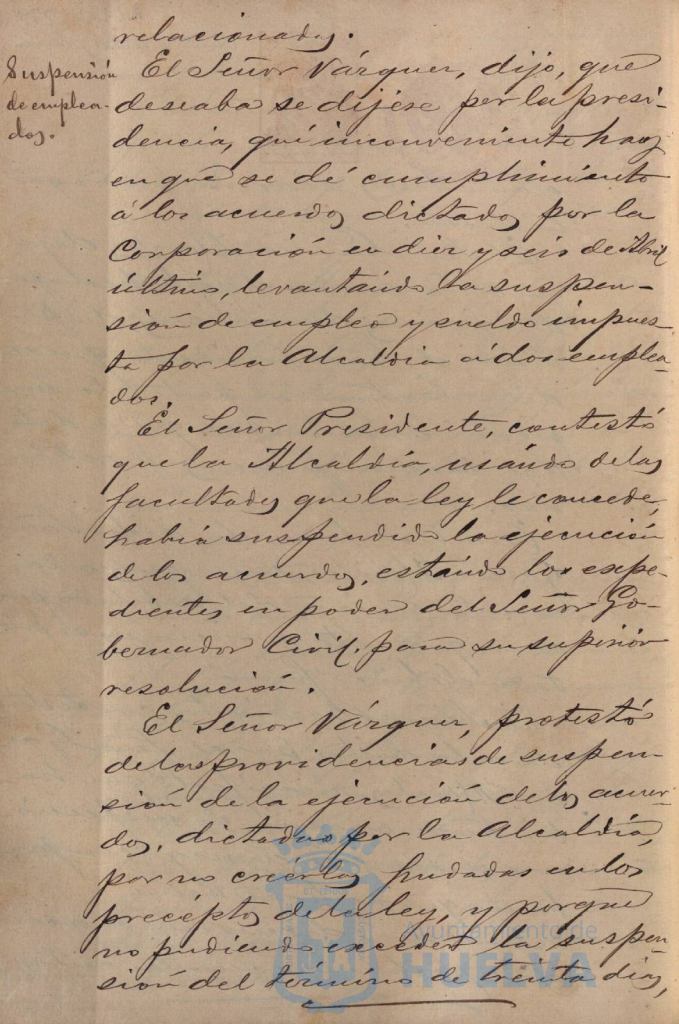 relacionados.
Suspensión
de emplea-
dos.
El Señor Vázquez, dijo, que
deseaba se dijése por la presi-
dencia, qué inconveniente hay
en que se dé cumplimiento
á los acuerdos dictados por la
Corporación en diez y seis de Abril
último, levantando la suspen-
sión de empleo y sueldo impues-
ta por la Alcaldia á dos emplea-
dos.
El Señor Presidente, contestó
que la Alcaldía, usando de las
facultades que la ley le concede,
había suspendido la ejecución
de los acuerdos, estando los expe-
dientes en poder del Señor Go-
bernador Civil para su superior
resolución.
El Señor Vázquez, protestó
de las providencias de suspen-
sión de la ejecución de los acuer-
dos, dictadas por la Alcaldía,
por no creerlas fundadas en los
precéptos de la ley, y porque
no pudiendo exceder la suspen-
sión del término de treinta dias,
Ayuntamiento de
HUELVA